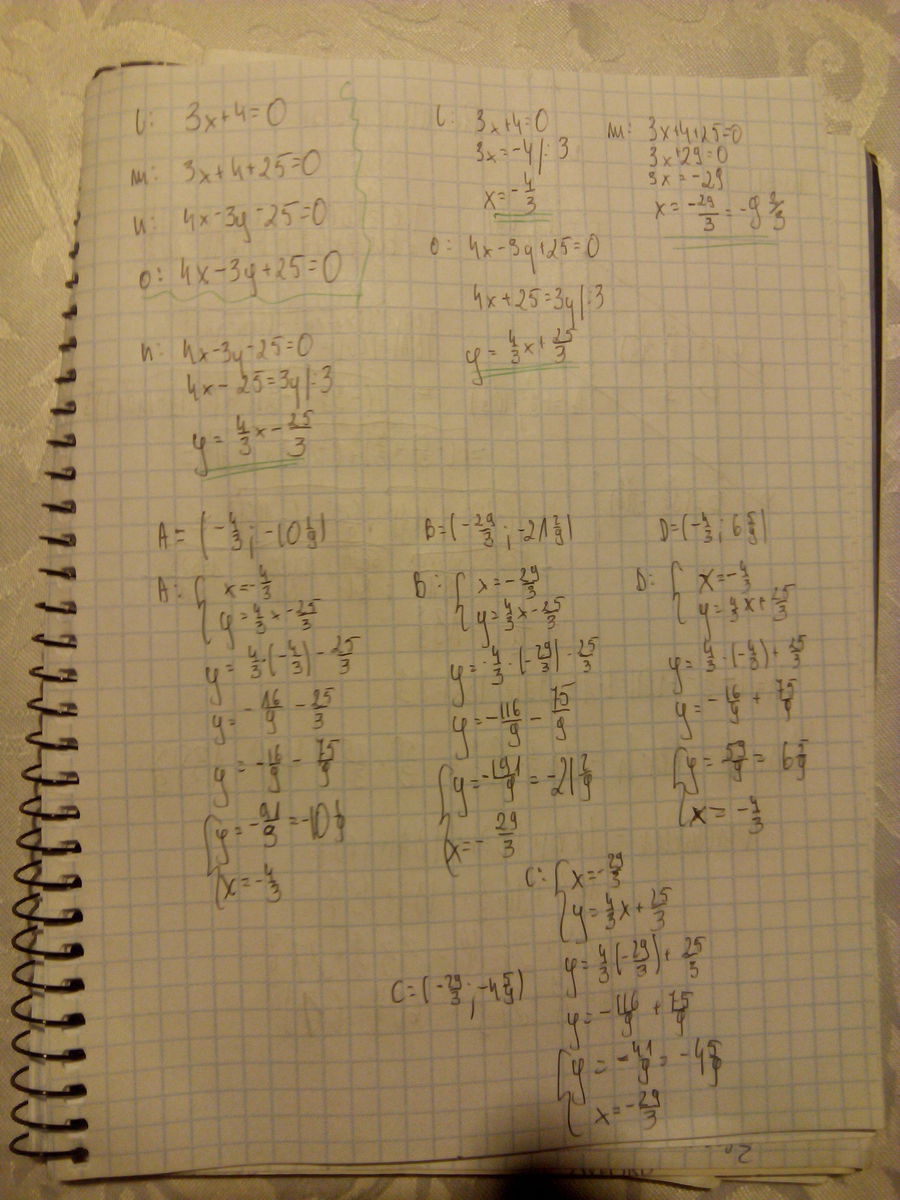 l: 3x+4=0
m: 3x+4+25=0
n: 4x-3y-25=0
o: 4x-3y+25=0
l: 3x+4=0
3x=-4 |:3
x=-4/3
m: 3x+4+25=0
3x+29=0
3x=-29
x=-29/3=-9 2/3
o: 4x-3y+25=0
4x+25=3y |:3
y=4/3x+25/3
n: 4x-3y-25=0
4x-25=3y |:3
y=4/3x-25/3
A=(-4/3; -10 1/9)
A: { x=-4/3
y=4/3x-25/3
y=4/3·(-4/3)-25/3
y=-16/9-25/3
y=-16/9-75/9
{ y=-91/9=-10 1/9
x=-4/3
B=(-29/3; -21 2/9)
B: { x=-29/3
y=4/3x-25/3
y=4/3·(-29/3)-25/3
y=-116/9-75/9
{ y=-191/9=-21 2/9
x=-29/3
D=(-4/3; 6 5/9)
D: { x=-4/3
y=4/3x+25/3
y=4/3·(-4/3)+25/3
y=-16/9+75/9
{ y=59/9=6 5/9
x=-4/3
C=(-29/3; -4 5/9)
C: { x=-29/3
y=4/3x+25/3
y=4/3(-29/3)+25/3
y=-116/9+75/9
{ y=-41/9=-4 5/9
x=-29/3